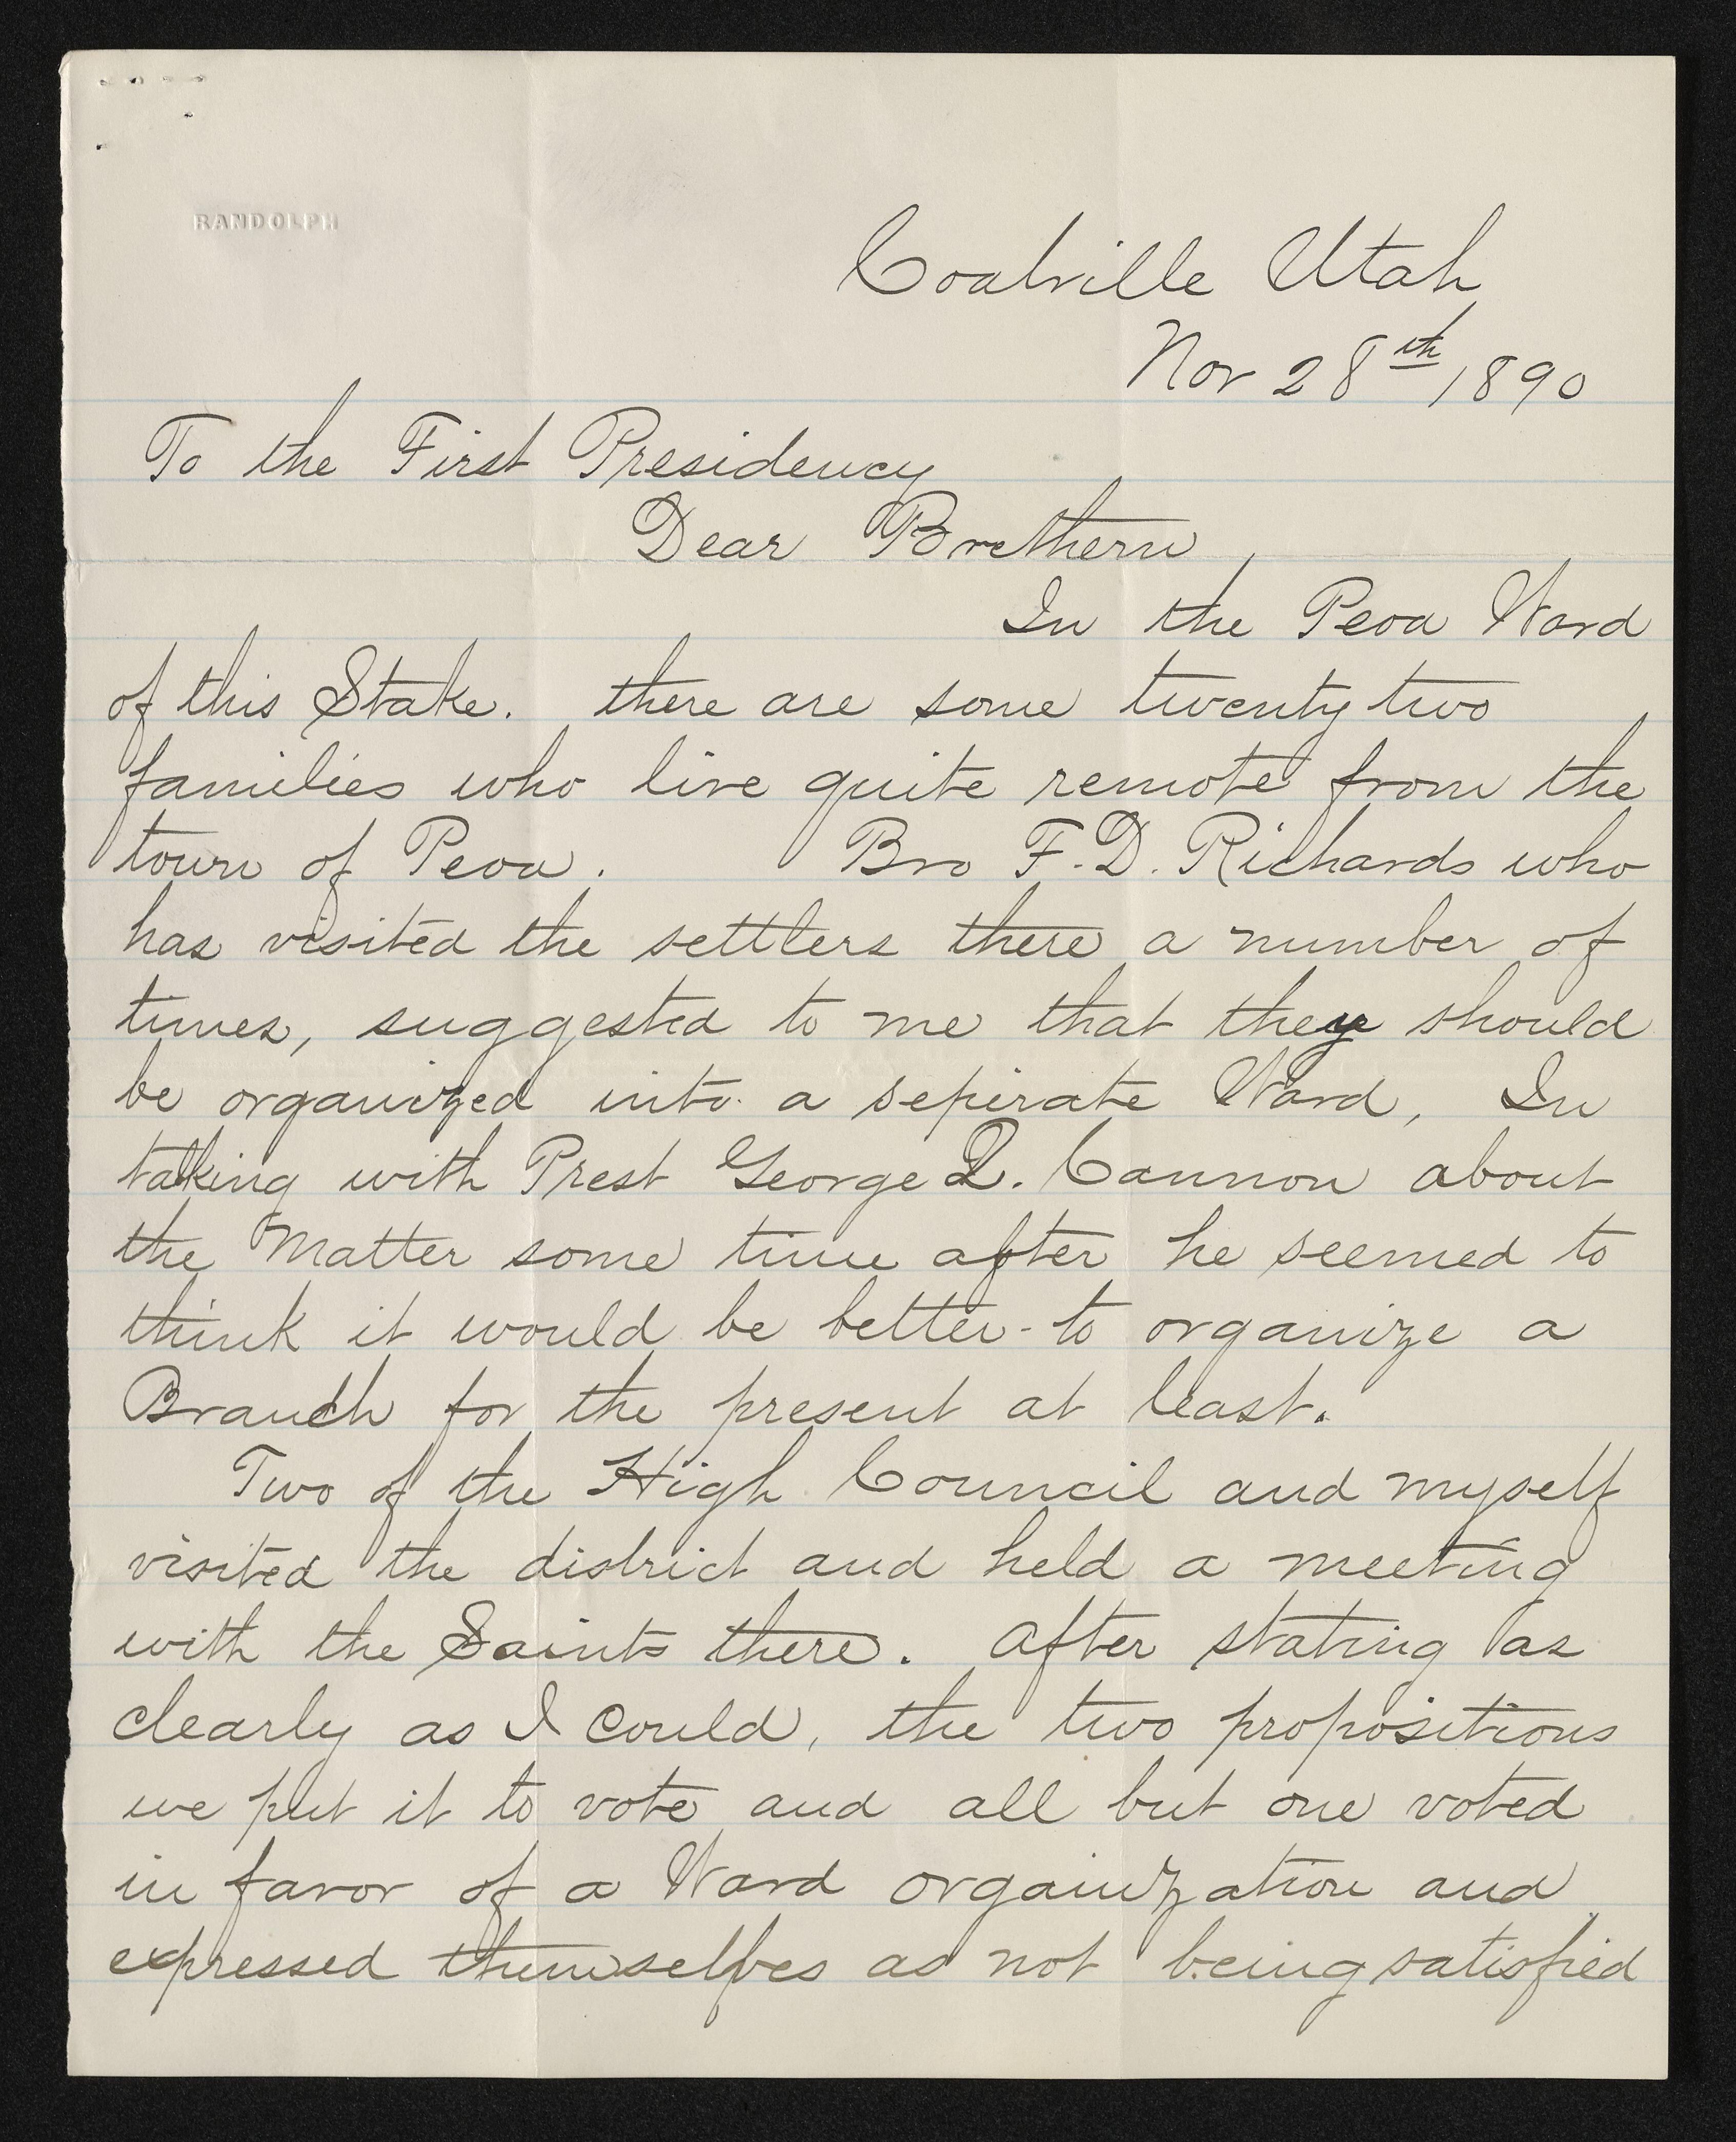 RANDOLPH
Coalville Utah
Nov 28th, 1890
To the First Presidency
Dear Brethern,
In the Peoa Ward
of this Stake. there are some twenty two
families who live quite remote from the
town of Peoa. Bro F. D. Richards who
has visited the settlers there a number of
times, suggested to me that they should
be organized into a sepirate Ward, In
talking with Prest George Q. Cannon about
the Matter some time after he seemed to
think it would be better to organize a
Branch for the present at least.
Two of the High Council and myself
visited the district and held a meeting
with the Saints there. After stating as
clearly as I could, the two propositions
we put it to vote and all but one voted
in favor of a Ward orgainzation and
expressed themselfves as not being satisfied